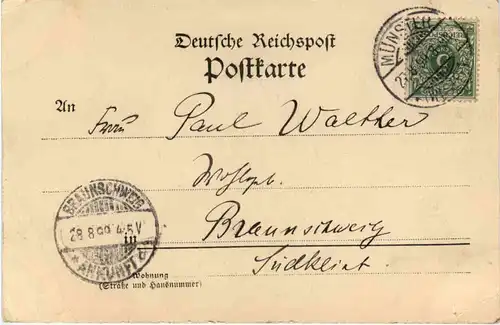 Deutsche Reichspost
Postkarte
MÜNSTER
An
Paul Walther
Wohlgb.
BRAUNSCHWEIG
28.8.99. 4-5V
ANKUNFT
in
Braunschweig
Südklint.
Wohnung
(Straße und Hausnummer)